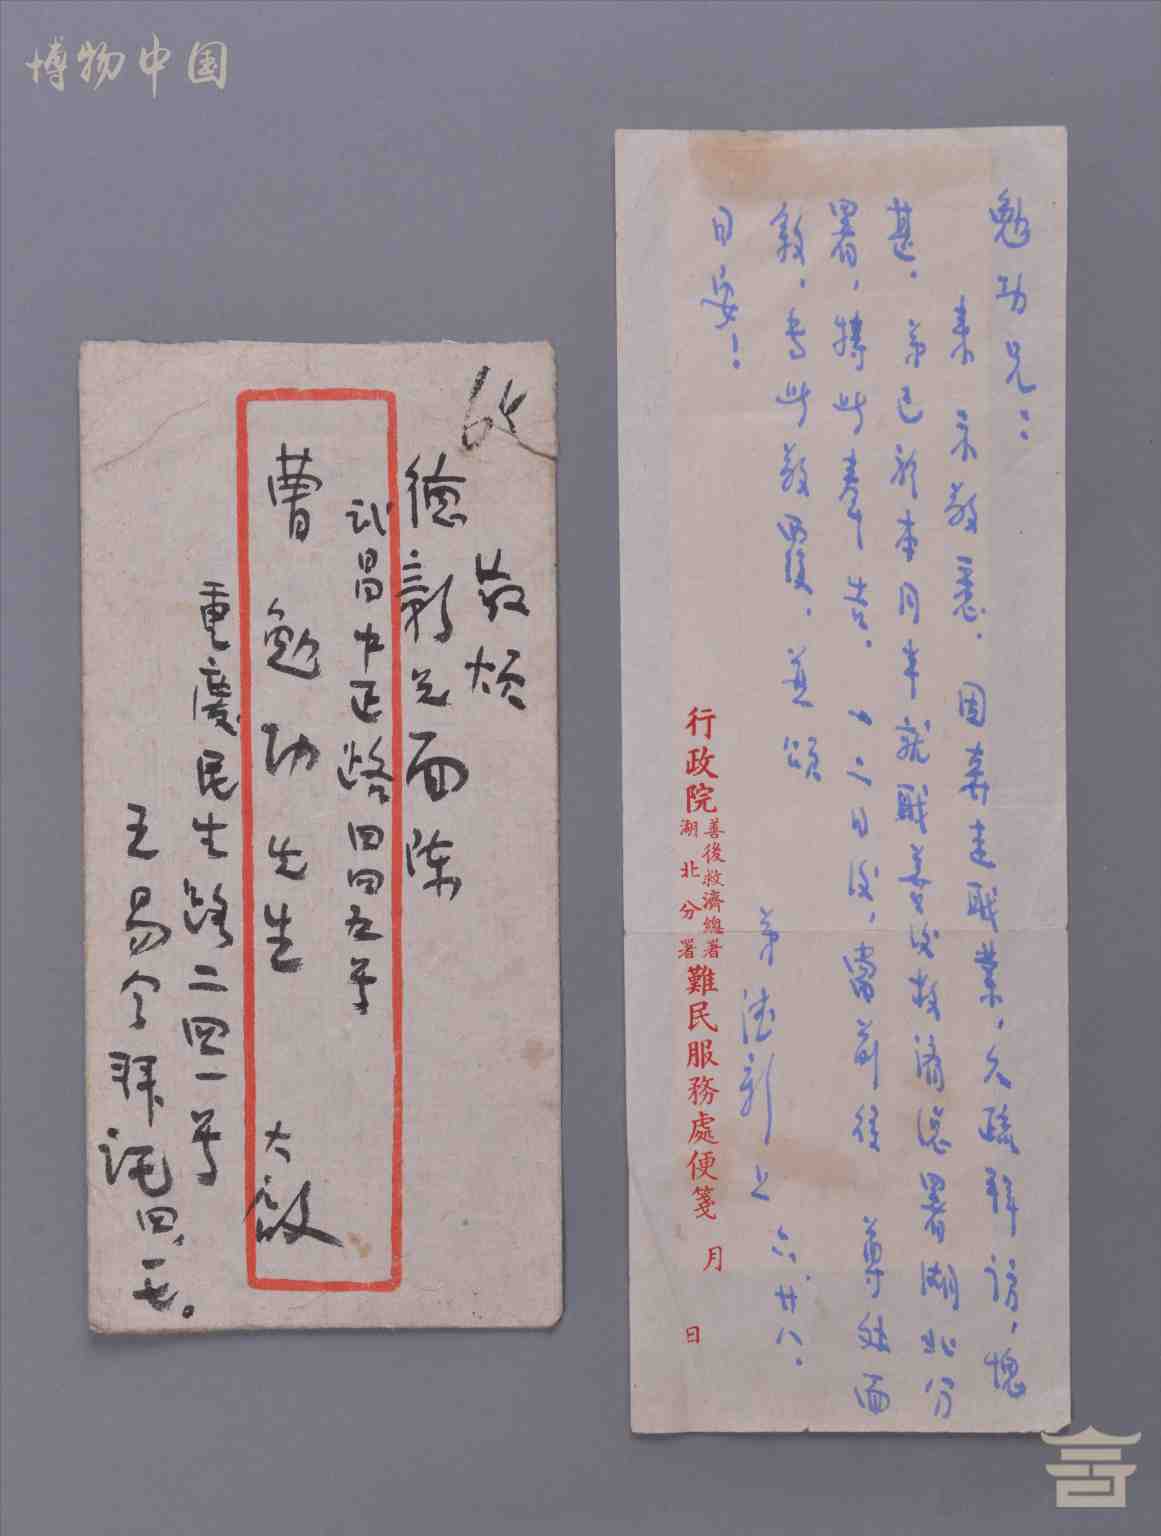 博物中国
敬烦
德彰兄面陈
武昌中正路四四五号
曹勉功先生 大启
重庆民生路二四一号
王易今拜讬 四、一七。
勉功兄：
来示敬悉。因奔走职业，久疏拜访，愧
甚。弟已於本月半就职善後救济总署湖北分
署，特此奉告。一二日後，当前往 尊处面
叙。专此敬覆，并颂
日安！
弟德彰上 六、廿八.
行政院善後救濟總署湖北分署難民服務處便箋 月 日